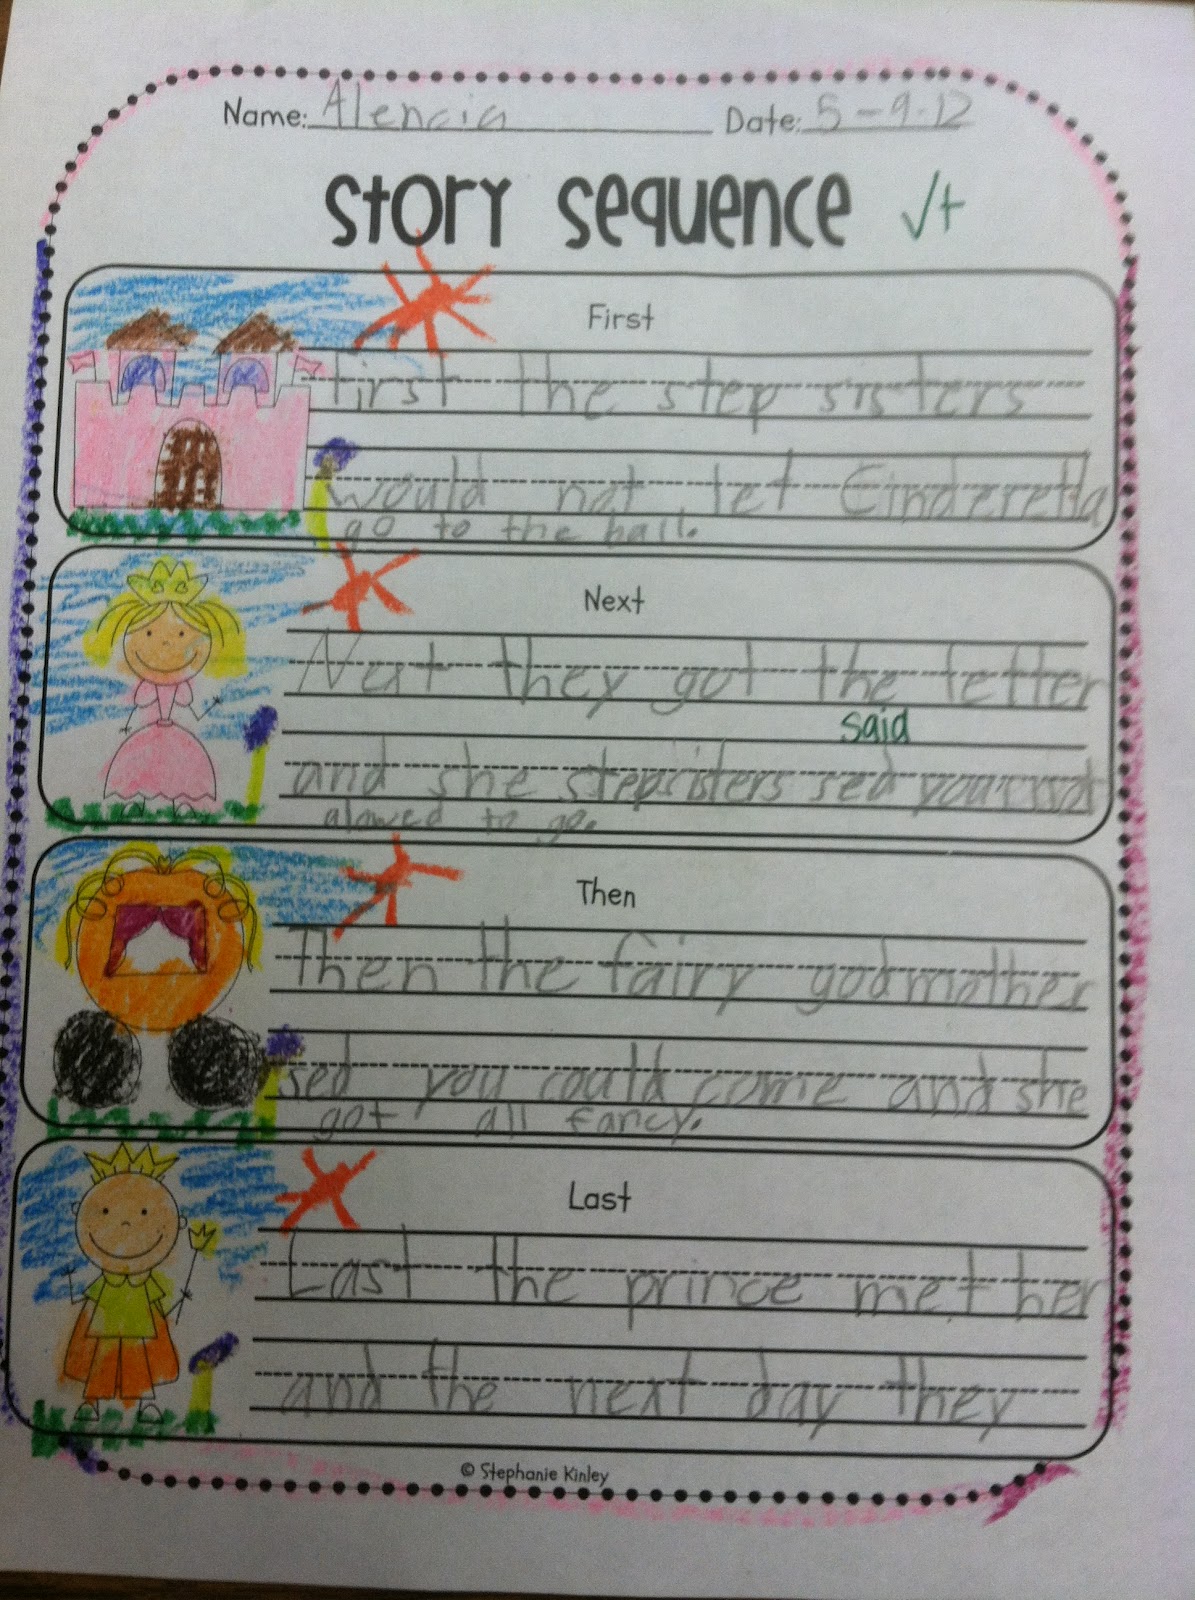 Name: Alencia Date: 5-9-12
Story Sequence √+
First
First the step sisters
would not let Cinderella
go to the ball.
Next
Next they got the letter
said
and she stepsisters sed your not
alowed to go.
Then
Then the fairy godmother
sed you could come and she
got all fancy.
Last
Last the prince met her
and the next day they
© Stephanie Kinley